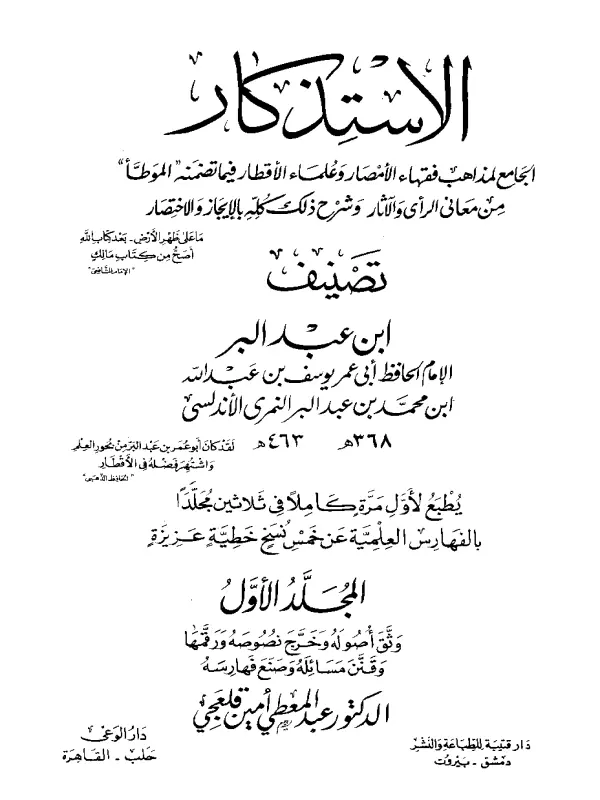 الاستذكار
الجامع لمذاهب فقهاء الأمصار وعلماء الأقطار فيما تضمنه "الموطأ"
من معاني الرأي والآثار وشرح ذلك كله بالإيجاز والاختصار
ما على ظهر الأرض - بعد كتاب الله
أصح من كتاب مالك
"الإمام الشافعي"
تصنيف
ابن عبد البر
الإمام الحافظ أبي عمر يوسف بن عبد الله
ابن محمد بن عبد البر النمري الأندلسي
٣٦٨هـ ٤٦٣هـ
لقد كان أبو عمر بن عبد البر من بحور العلم
واشتهر فضله في الأقطار
"الحافظ الذهبي"
يُطبع لأول مرة كاملاً في ثلاثين مجلداً
بالفهارس العلمية عن خمس نسخ خطية عزيزة
المجلد الأول
وثق أصوله وخرج نصوصه ورقمها
وقنن مسائله وصنع فهارسه
الدكتور عبد المعطي أمين قلعجي
دار قتيبة للطباعة والنشر
دمشق - بيروت
دار الوعي
حلب - القاهرة